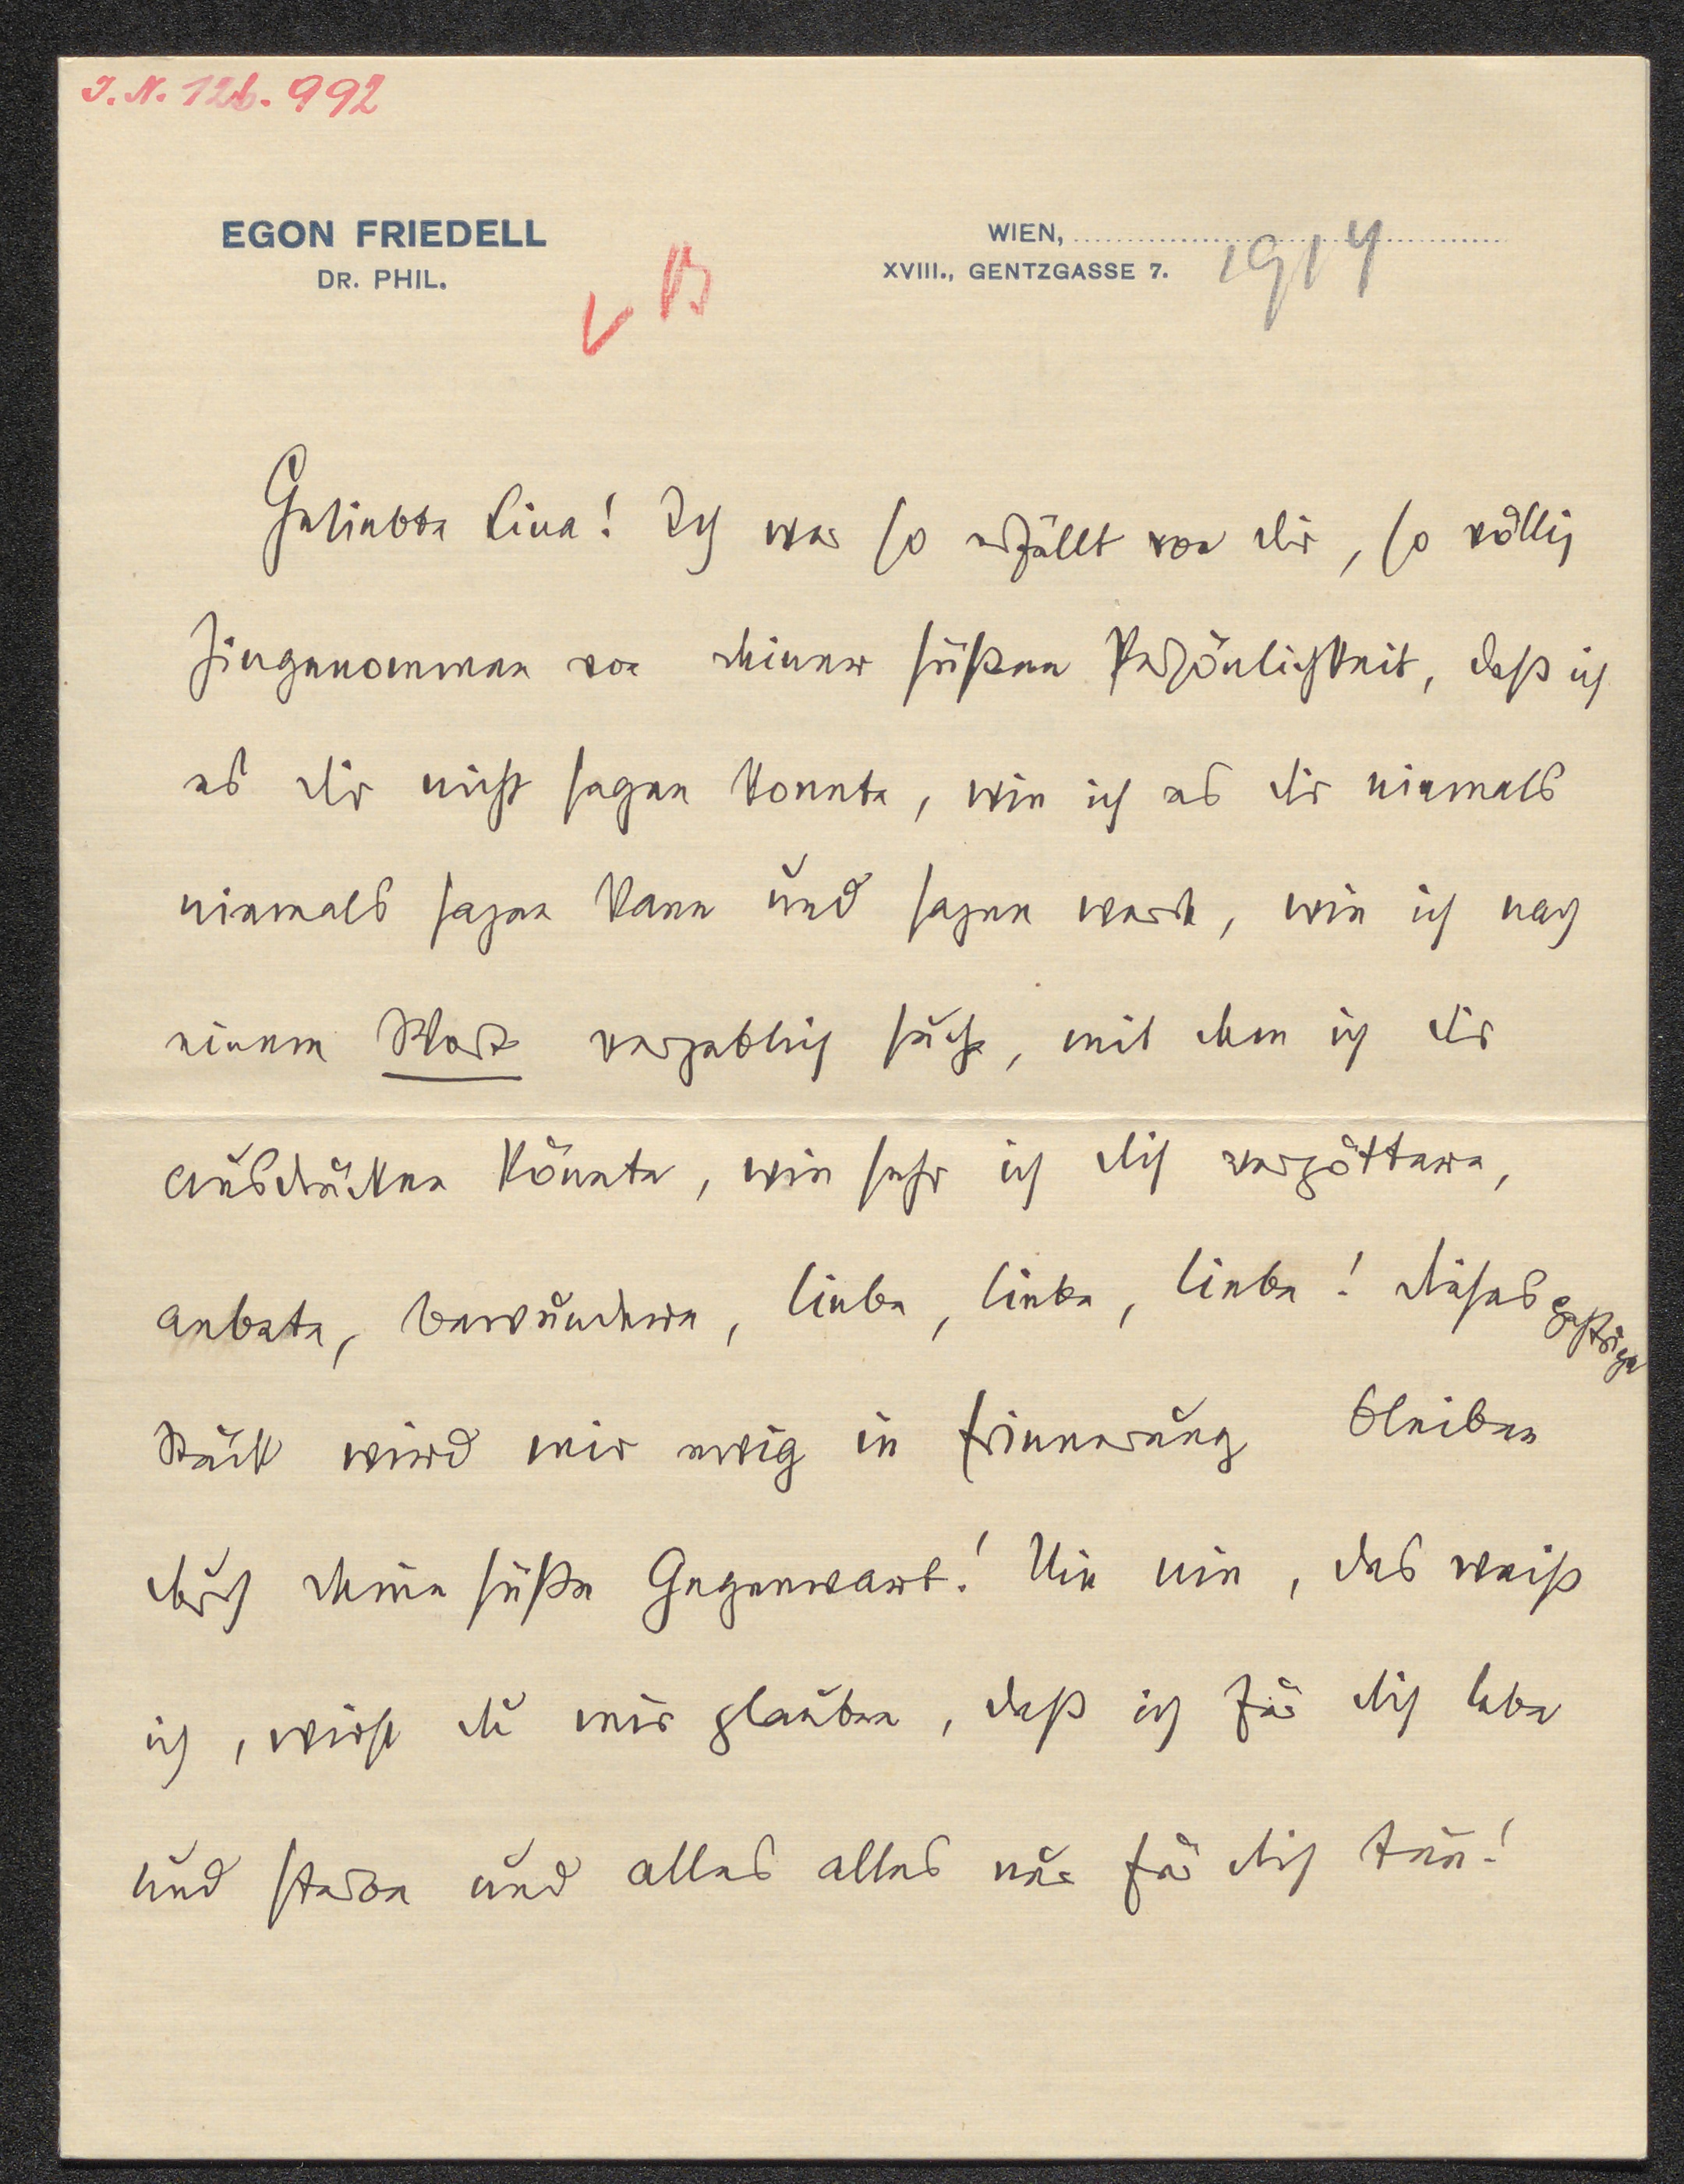 I.N. 126.992
EGON FRIEDELL
DR. PHIL.
WIEN,
XVIII., GENTZGASSE 7.
1914
V B
Geliebte Lina! Ich war so erfüllt von dir, so völlig
hingenommen von deiner süßen Persönlichkeit, daß ich
es dir nicht sagen konnte, wie ich es dir niemals
niemals sagen kann und sagen werde, wie ich nach
einem Wort vergeblich suche, mit dem ich dir
ausdrücken könnte, wie sehr ich dich vergöttere,
anbete, bewundere, liebe, liebe, liebe! Dieses gestrige
Stück wird mir ewig in Erinnerung bleiben
durch deine süße Gegenwart! Nie nie, das weiß
ich, wirst du mir glauben, daß ich für dich lebe
und sterbe und alles alles nur für dich tue!